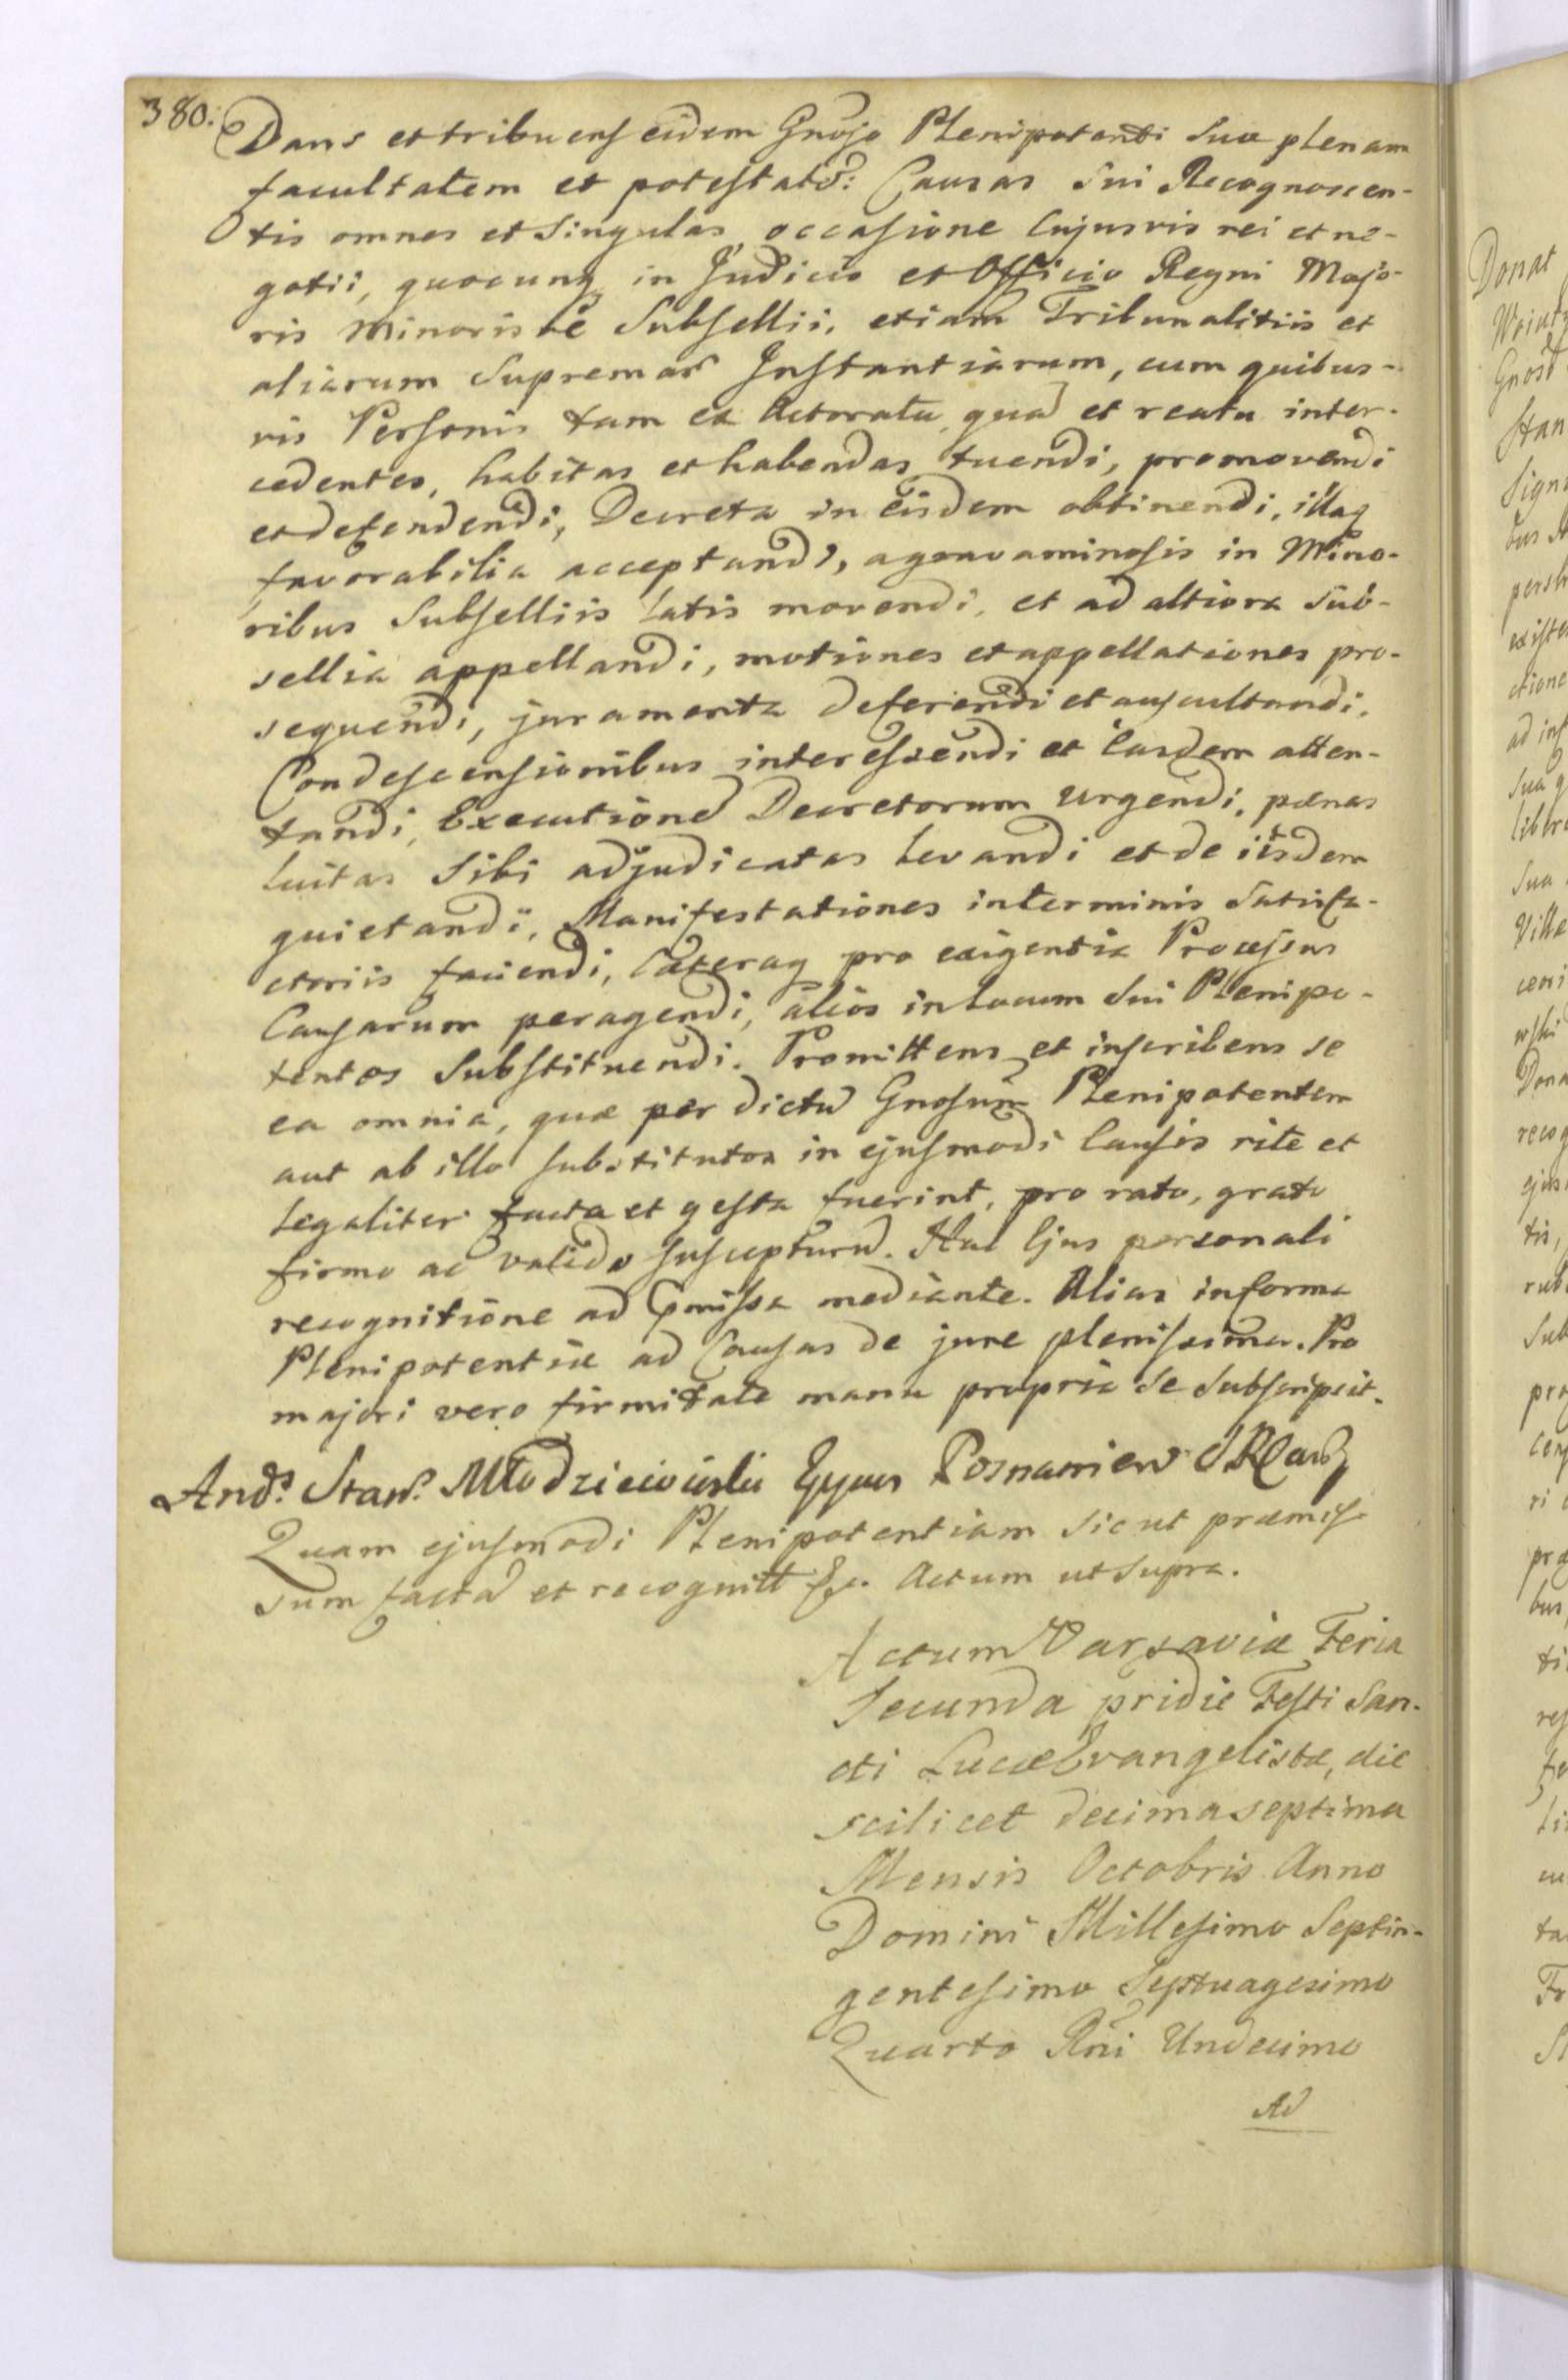 380.
Dans et tribuens eidem Gnoso Plenipotenti suo plenam
facultatem et potestatē: Causas sui Recognoscen-
tis omnes et Singulas occasione cujusvis rei et ne-
gotii, quocunq in Judicio et Officio Regni Majo-
ris Minorisve Subsellii, etiam Tribunalitiis et
aliarum Supremar Instantiarum, cum quibus-
vis Personis tam ex Actoratu quā et reatu inter-
cedentes, habitas et habendas tuendi, promovendi
et defendendi, Decreta in eisdem obtinendi, illaq
favorabilia acceptandi, agravaminosis in Mino-
ribus Subselliis latis movendi, et ad altiora Sub-
sellia appellandi, motiones et appellationes pro-
sequendi, juramenta deferendi et auscultandi,
Condescensionibus interessendi et easdem atten-
tandi, Executionē Decretorum urgendi, pænas
luitas sibi adjudicatas levandi et de iisdem
quietandi, Manifestationes in terminis Satisfa-
ctoriis faciendi, Cæteraq pro exigentia Processus
Causarum peragendi, alios in locum sui Plenipo-
tentes Substituendi. Promittens et inscribens se
ea omnia, quæ per dictū Gnosum Plenipotentem
aut ab illo substitutos in ejusmodi Causis rite et
legaliter facta et gesta fuerint, pro rato, grato
firmo ac valido suscepturū. Hac Ejus personali
recognitione ad pmissa mediante. Alias in forma
Plenipotentiæ ad Causas de jure plenissima. Pro
majori vero firmitate manu propria se subscripsit.
And: Stan: Młodzieiowski Eppus Posnanien
Quam ejusmodi Plenipotentiam sicut præmis-
sum factā et recognitt &c. Actum ut supra.
Actum Varsaviæ Feria
Secunda pridie Festi San-
cti Lucæ Evangelistæ, die
scilicet decima septima
Mensis Octobris Anno
Domini Millesimo Septin-
gentesimo Septuagesimo
Quarto Rni Undecimo
Ad